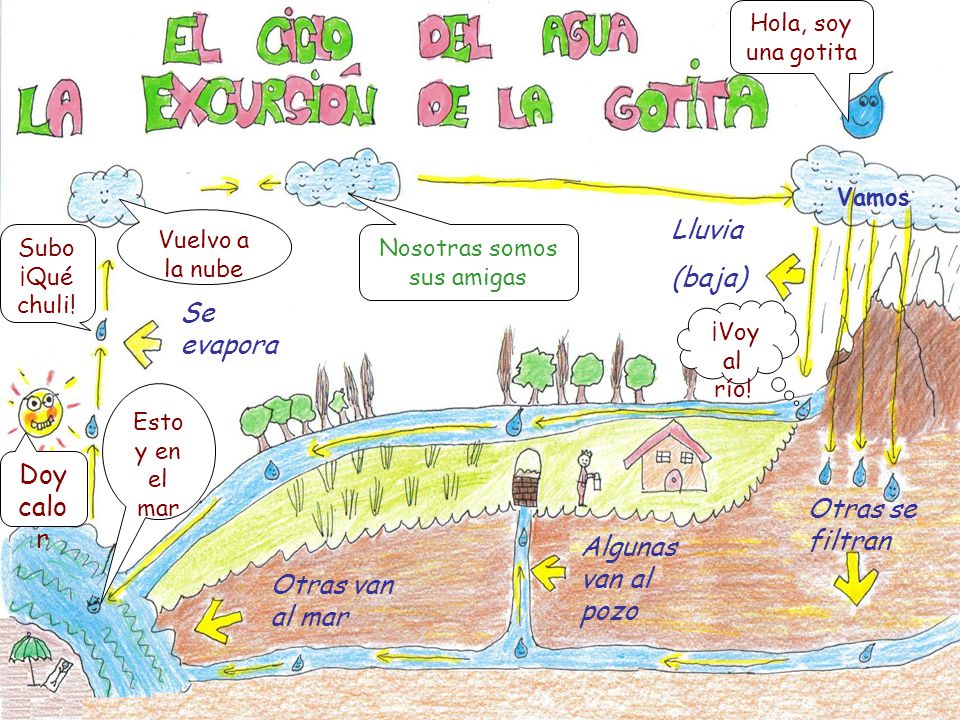 EL CICLO DEL AGUA
LA EXCURSIÓN DE LA GOTITA
Hola, soy
una gotita
Vamos
Vuelvo a
la nube
Nosotras somos
sus amigas
Subo
¡Qué
chuli!
Lluvia
(baja)
Se
evapora
¡Voy
al
río!
Esto
y en
el
mar
Doy
calo
r
Otras se
filtran
Algunas
van al
pozo
Otras van
al mar